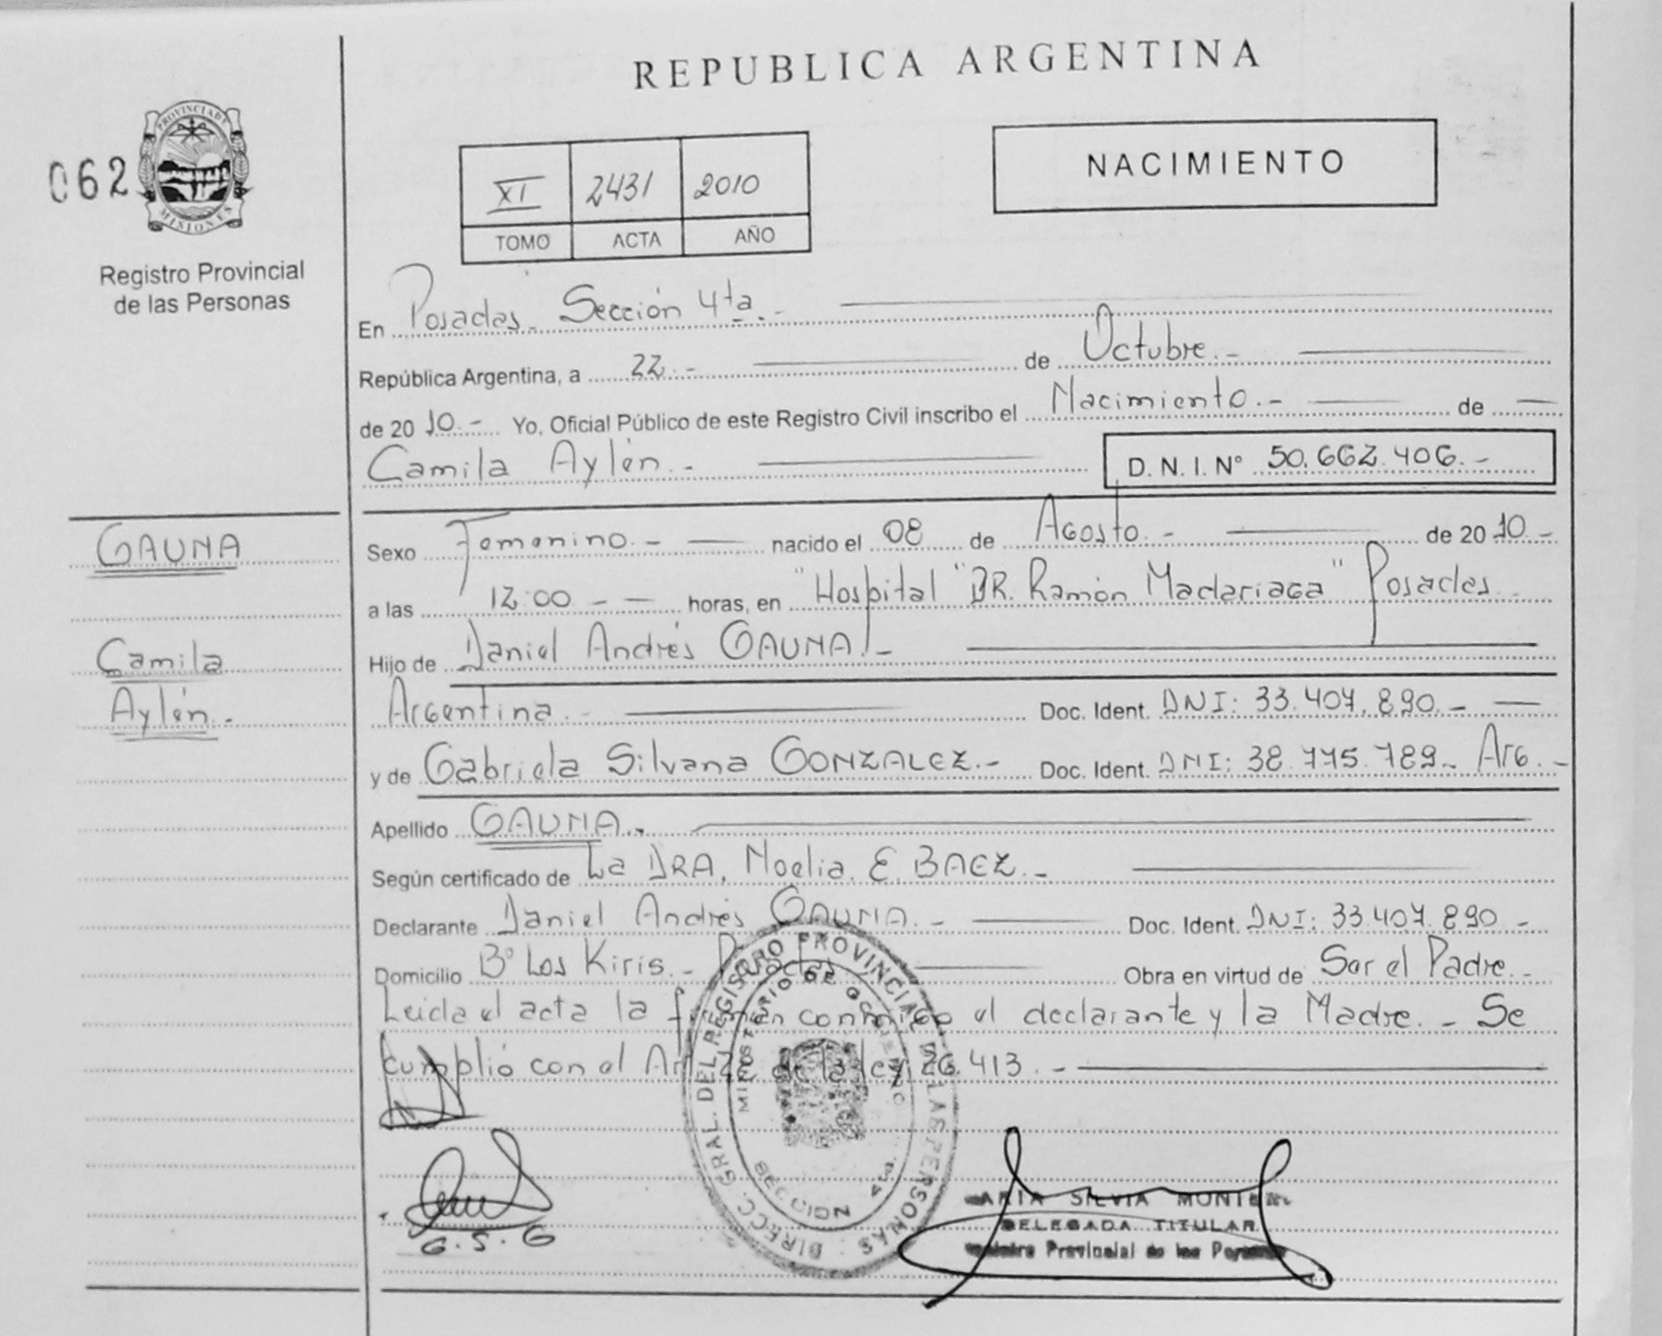 REPUBLICA ARGENTINA
062
PROVINCIA DE
MISIONES
Registro Provincial
de las Personas
XI 2431 2010
TOMO ACTA AÑO
NACIMIENTO
En Posadas. Sección 4ta.-
República Argentina, a 22.- de Octubre.-
de 2010.- Yo, Oficial Público de este Registro Civil inscribo el Nacimiento.- de
Camila Aylén.- D. N. I. N° 50.662.406.-
GAUNA
Sexo Femenino.- nacido el 08 de Agosto.- de 2010.-
a las 12:00 -- horas, en "Hospital "DR. Ramón Madariaga" Posadas.
Camila
Hijo de Daniel Andrés GAUNA.-
Aylén.-
Argentina.- Doc. Ident. DNI: 33.407.890.-
y de Gabriela Silvana GONZALEZ.- Doc. Ident. DNI: 38.775.789.- Arg.-
Apellido GAUNA.
Según certificado de La DRA. Noelia. E. BAEZ.-
Declarante Daniel Andrés GAUNA.- Doc. Ident. DNI: 33.407.890.-
Domicilio B° Los Kiris.- Posadas Obra en virtud de Ser el Padre.-
Leida el acta la firman conmigo el declarante y la Madre.- Se
cumplió con el Art. de la ley 26.413.-
DIRECC. GRAL. DEL REGISTRO PROVINCIAL DE LAS PERSONAS
MINISTERIO DE GOBIERNO
SECCION 4ta.
G.S.G
SILVIA
DELEGADA TITULAR
Provincial de las